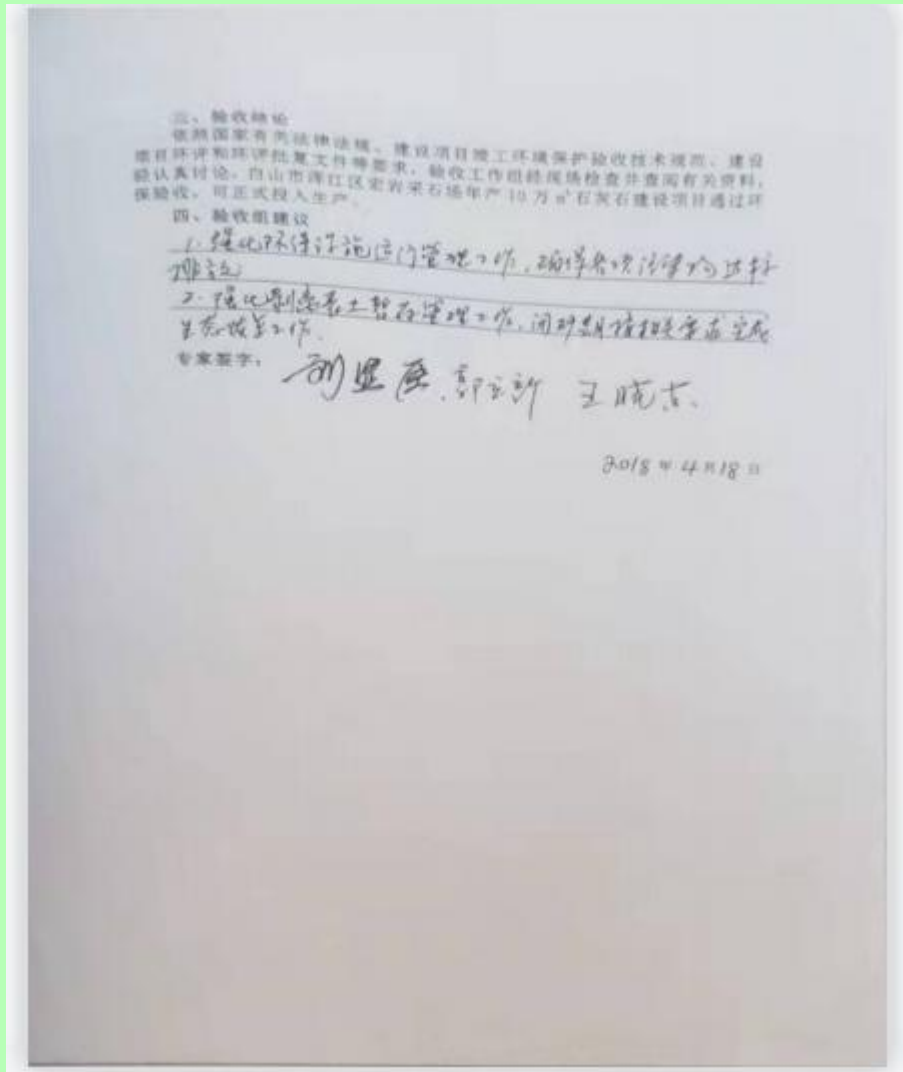 三、验收结论
依照国家有关法律法规、建设项目竣工环境保护验收技术规范、建设
项目环评和环评批复文件等要求，验收工作组经现场检查并查阅有关资料，
经认真讨论，白山市浑江区宏岩采石场年产10万m³石灰石建设项目通过环
保验收，可正式投入生产。
四、验收组建议
1.强化环保设施运行管理工作，确保各项污染物达标
排放
2.强化剥离表土暂存管理工作，闭矿期按相关要求完成
生态恢复工作。
专家签字：
王晓东
2018年4月18日